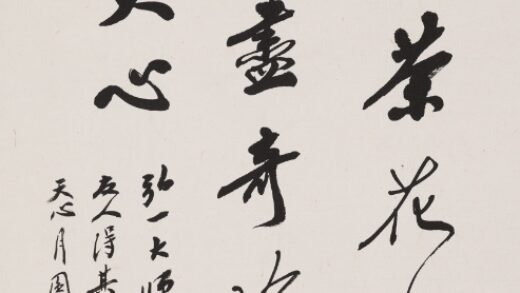 茶花
盡奇
心
弘一大師
友人得其
天心月圓